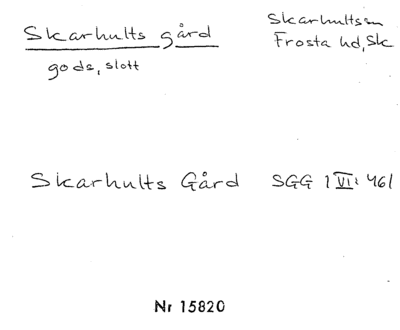 Skarhults gård
gods, slott
Skarhults sn
Frosta hd, Sk
Skarhults Gård SGG 1 VI: 461
Nr 15820